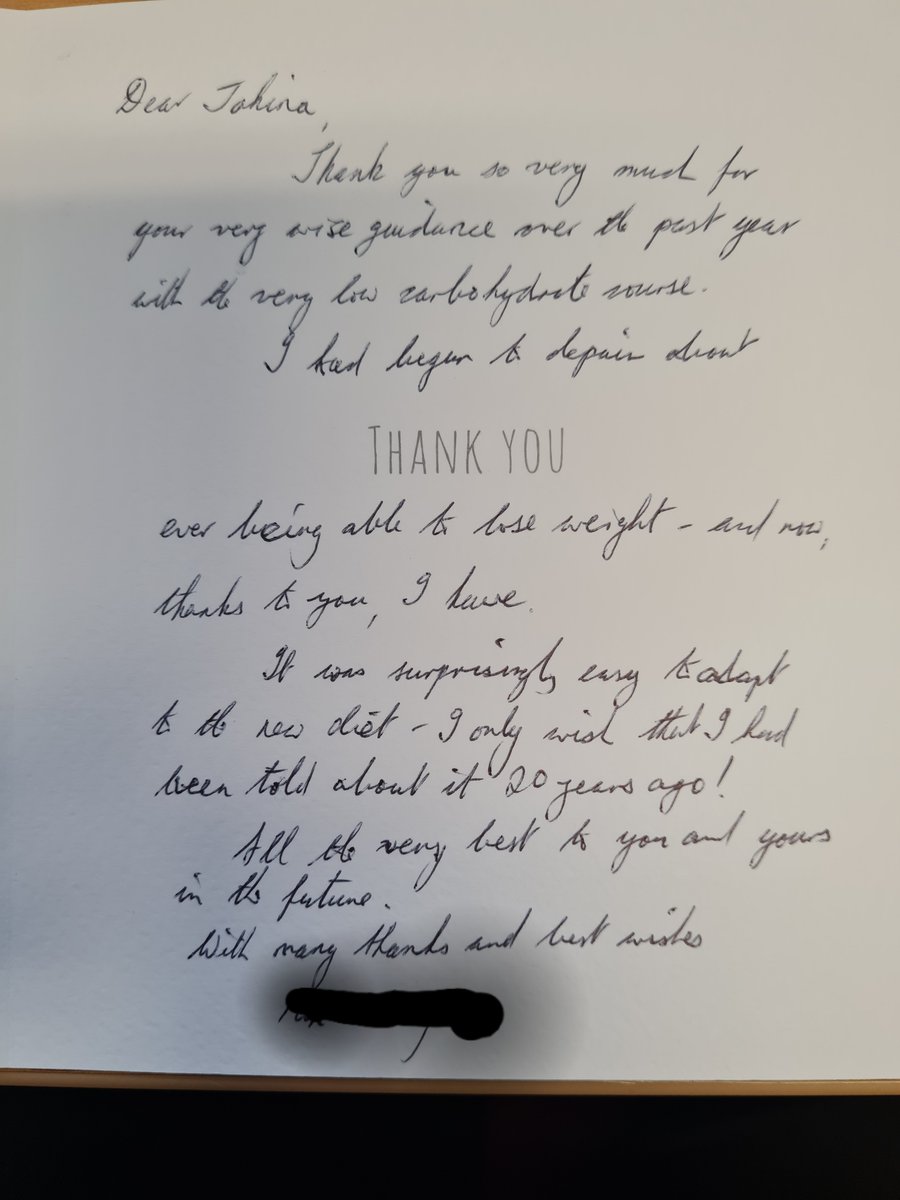 Dear Tahina,
Thank you so very much for
your very wise guidance over the past year
with the very low carbohydrate course.
I had begun to depair about
THANK YOU
ever being able to lose weight - and now,
thanks to you, I have.
It was surprisingly easy to adapt
to the new diet - I only wish that I had
been told about it 20 years ago!
All the very best to you and yours
in the future.
With many thanks and best wishes